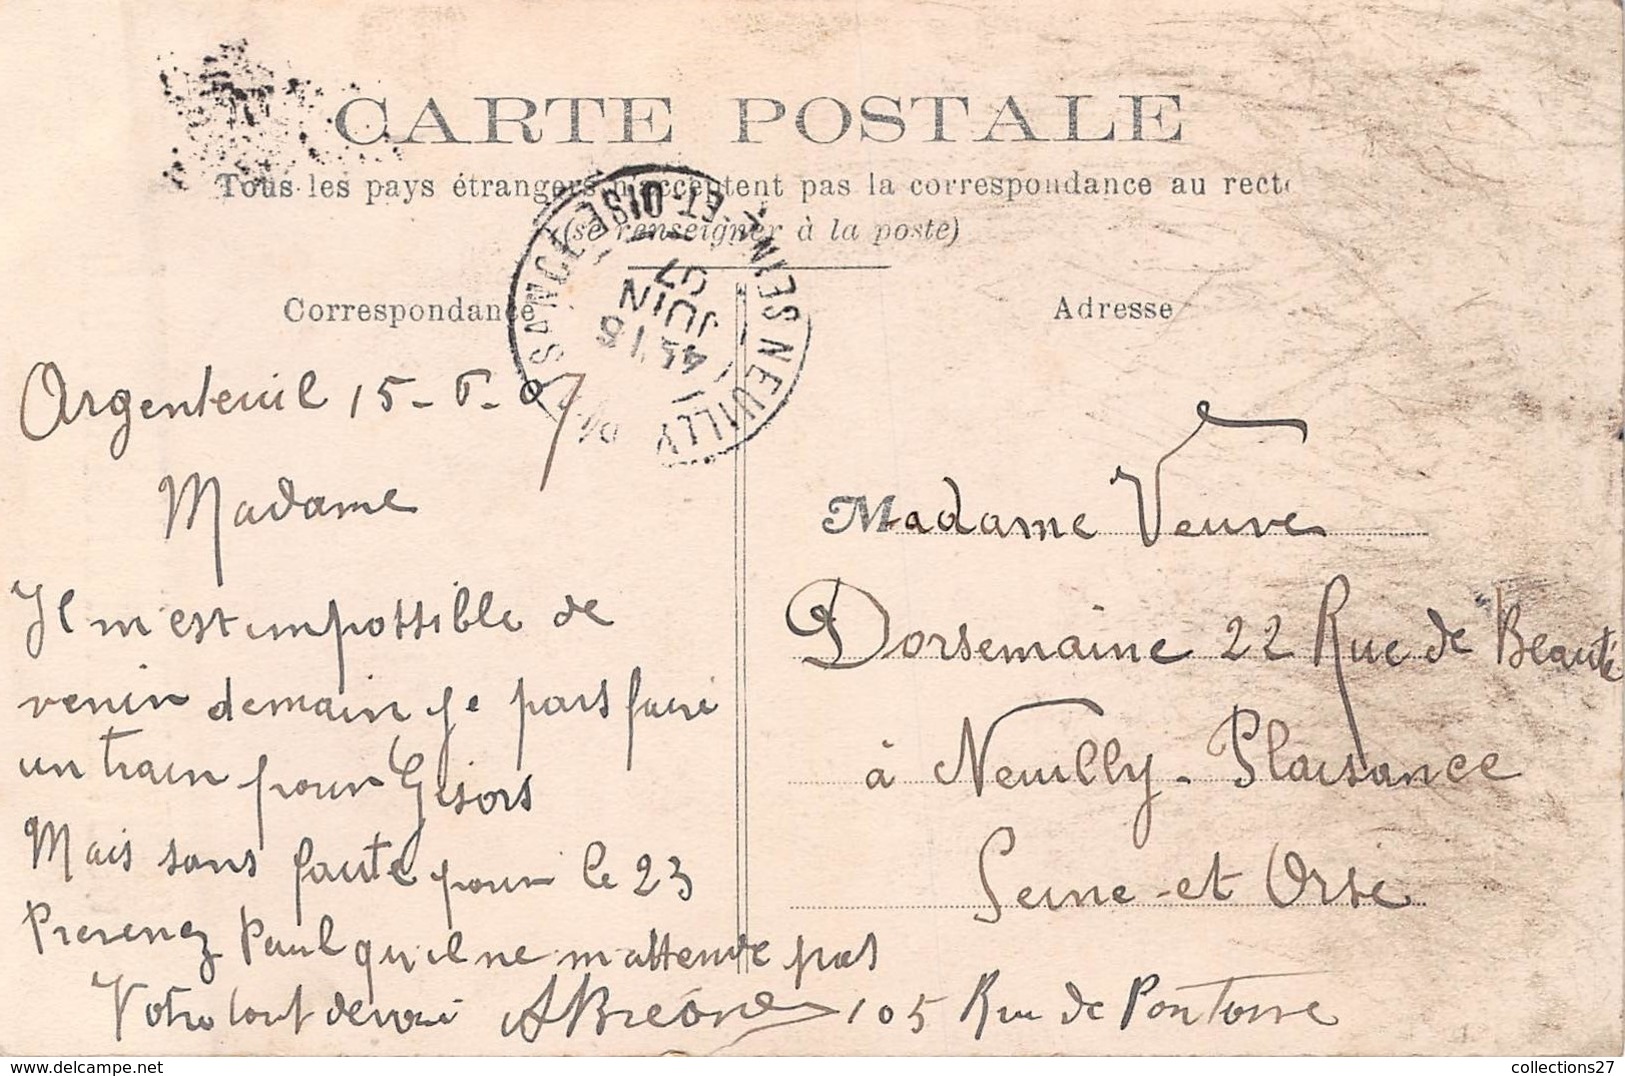 CARTE POSTALE
Tous les pays étrangers n'acceptent pas la correspondance au recto
(se renseigner à la poste)
Correspondance
Adresse
NEUILLY PLAISANCE SEINE-ET-OISE
JUIN
07
Argenteuil 15-6-07
Madame
Il m'est impossible de
venir demain je pars faire
un train pour Gisors
Mais sans faute pour le 23
Prevenez Paul qu'il ne m'attende pas
Votre tout devoué
105 Rue de Pontoise
Madame Veuve
Dorsemaine 22 Rue de Beauté
à Neuilly-Plaisance
Seine-et Oise
collections27